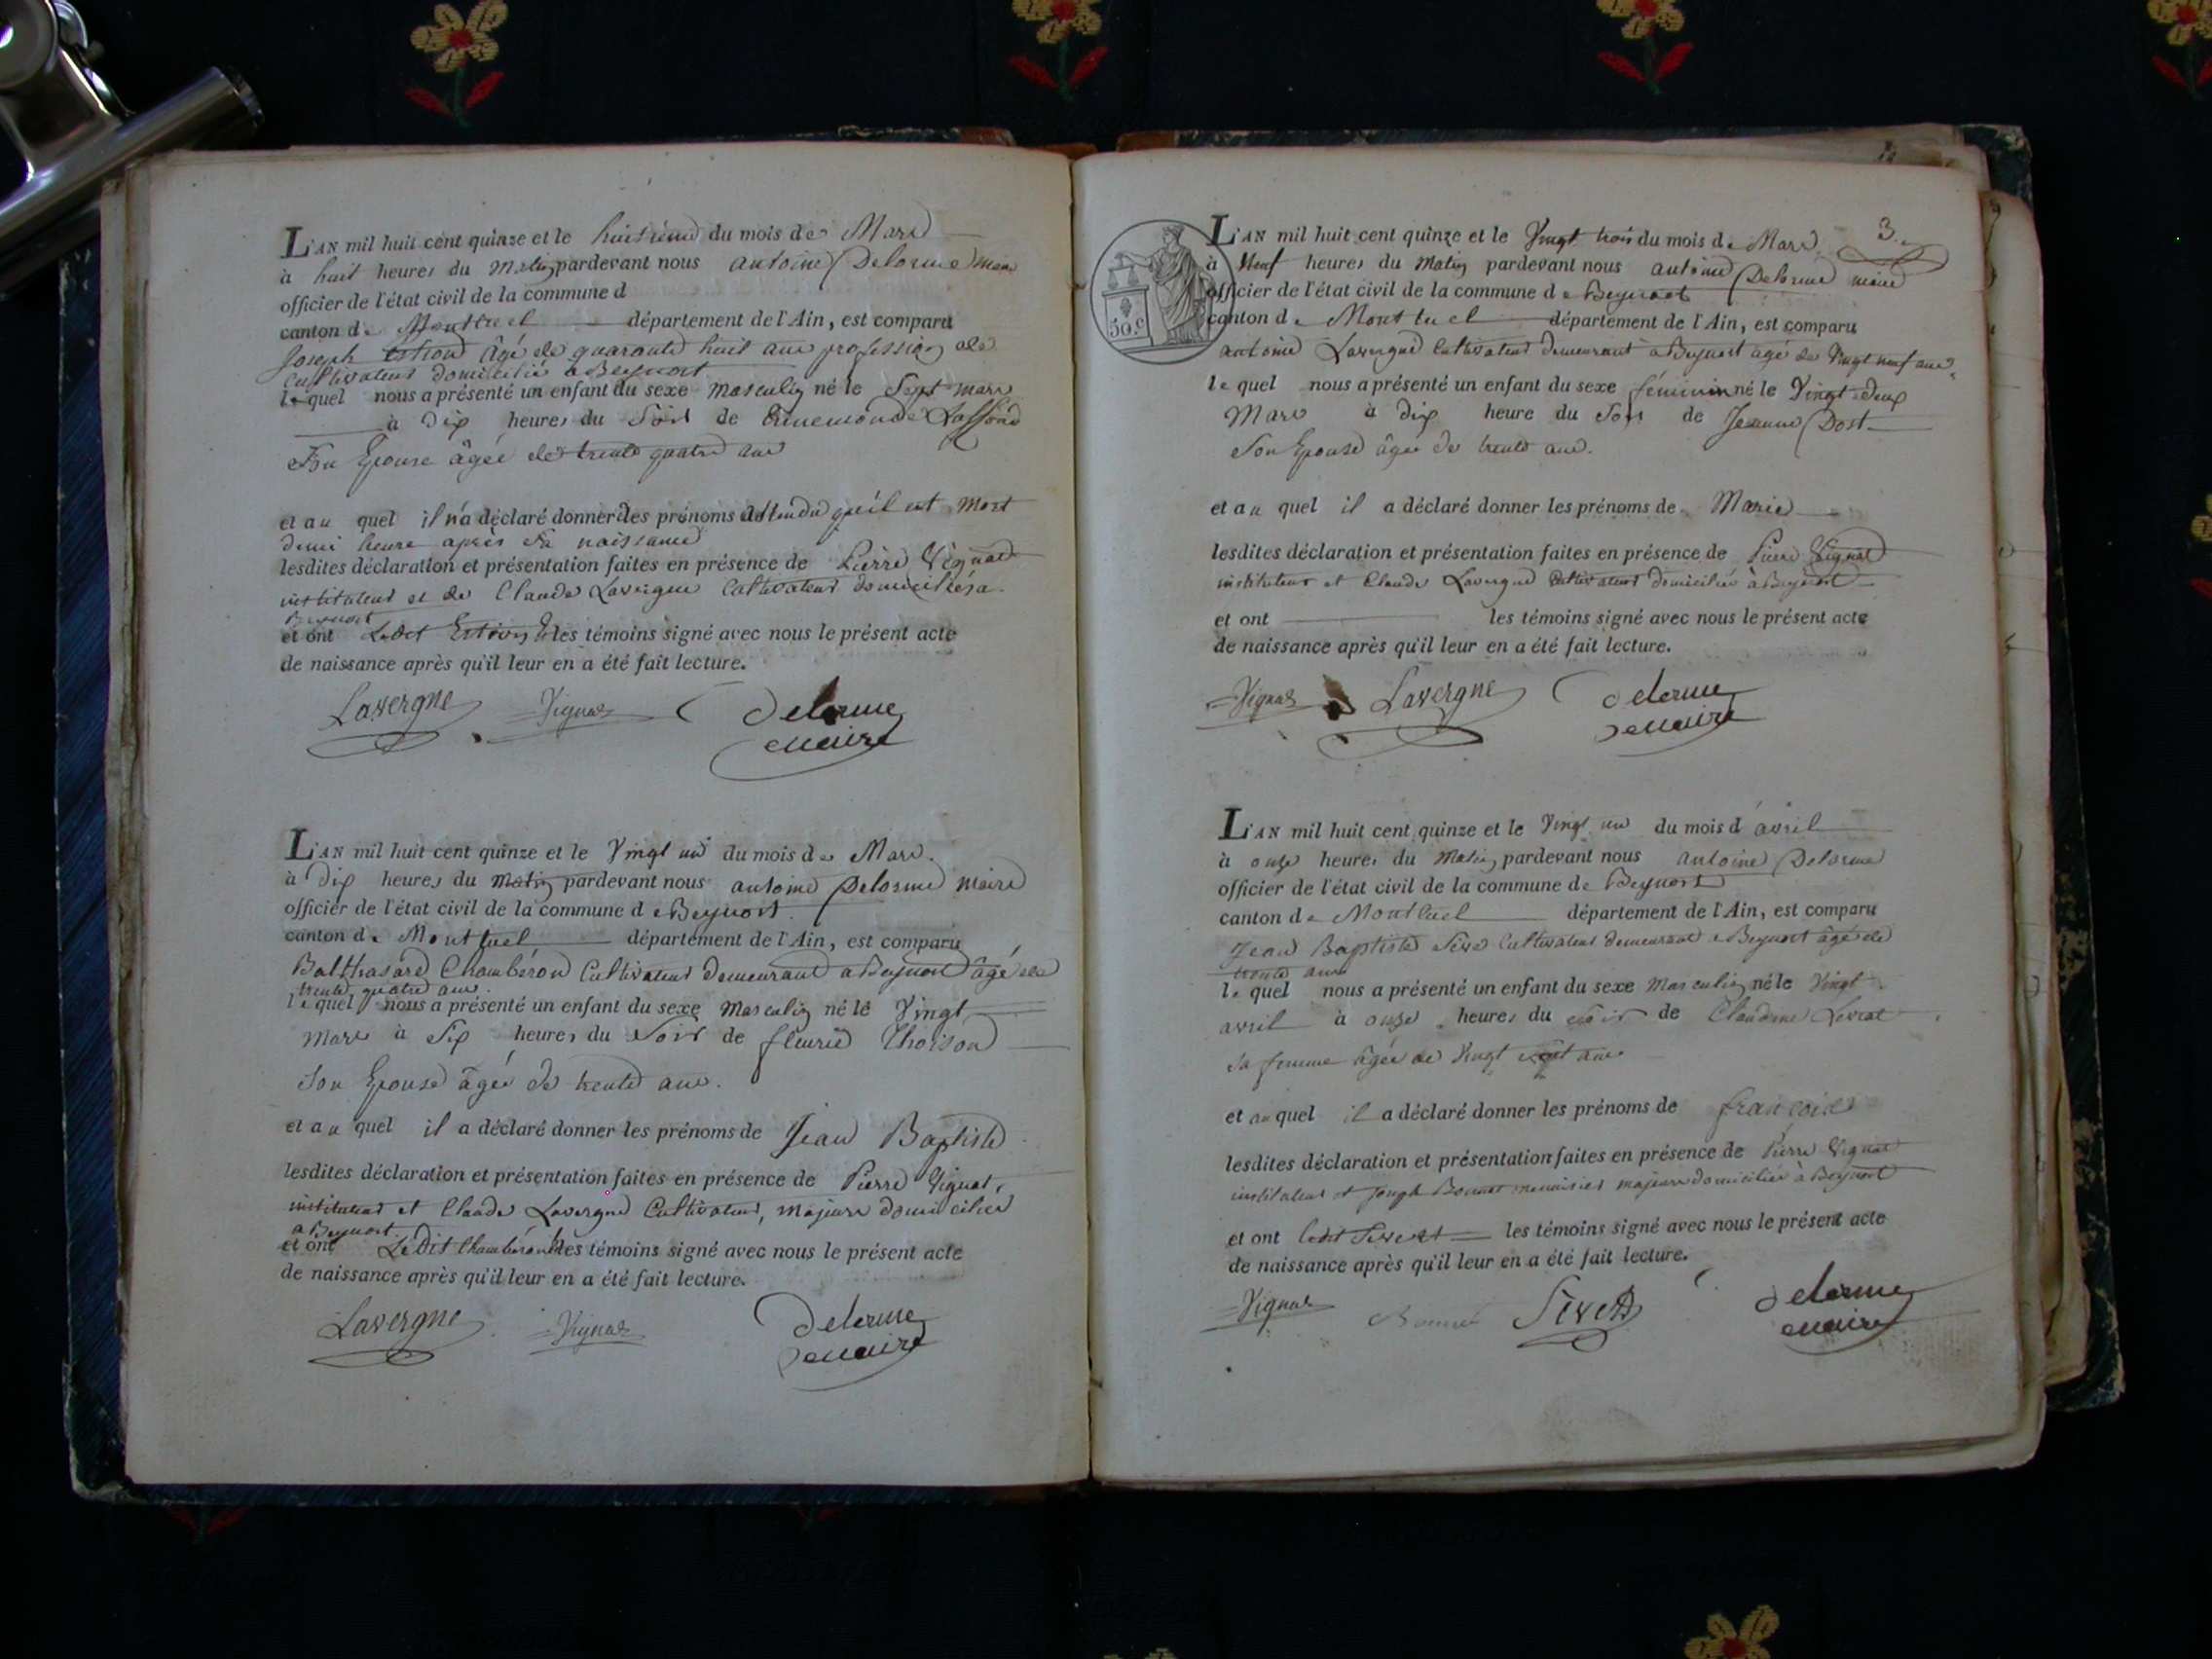 L'AN mil huit cent quinze et le huitième du mois de Mars
à huit heures du Matin pardevant nous antoine Delorme maire
officier de l'état civil de la commune d
canton de Montluel département de l'Ain, est comparu
Joseph âgé de quarante huit ans profession de
Cultivateur domicilié a Beynost
lequel nous a présenté un enfant du sexe Masculin né le Sept mars
à Dix heures du Soir de
Son Epouse âgée de trente quatre ans
et au quel il n'a déclaré donner des prénoms attendu qu'il est Mort
demi heure après sa naissance
lesdites déclaration et présentation faites en présence de Pierre Vignat
instituteur et de Claude Lavergne Cultivateur domiciliés a
Beynost
et ont Ledit les témoins signé avec nous le présent acte
de naissance après qu'il leur en a été fait lecture.
Lavergne Vignat Delorme
maire
L'AN mil huit cent quinze et le Vingt un du mois de Mars
à Dix heures du Matin pardevant nous antoine Delorme maire
officier de l'état civil de la commune de Beynost
canton de Montluel département de l'Ain, est comparu
Balthasard Chambéron Cultivateur demeurant a Beynost âgé de
trente quatre ans.
lequel nous a présenté un enfant du sexe Masculin né le Vingt
Mars à Six heures du Soir de fleurie Thoison
Son Epouse âgée de trente ans.
et au quel il a déclaré donner les prénoms de Jean Baptiste
lesdites déclaration et présentation faites en présence de Pierre Vignat,
instituteur et Claude Lavergne Cultivateur, majeurs domiciliés
a Beynost
et ont Ledit Chambéron les témoins signé avec nous le présent acte
de naissance après qu'il leur en a été fait lecture.
Lavergne Vignat Delorme
maire
3.
50.c
L'AN mil huit cent quinze et le Vingt trois du mois de Mars
à Neuf heures du Matin pardevant nous antoine Delorme maire
officier de l'état civil de la commune de Beynost
canton de Montluel département de l'Ain, est comparu
antoine Lavergne Cultivateur demeurant a Beynost âgé de Vingt neuf ans
lequel nous a présenté un enfant du sexe féminin né le Vingt Deux
Mars à Dix heure du Soir de Jeanne Dost
Son Epouse âgée de trente ans.
et au quel il a déclaré donner les prénoms de Marie
lesdites déclaration et présentation faites en présence de Pierre Vignat
instituteur et Claude Lavergne Cultivateur domiciliés à Beynost
et ont les témoins signé avec nous le présent acte
de naissance après qu'il leur en a été fait lecture.
Vignat Lavergne Delorme
maire
L'AN mil huit cent quinze et le Vingt un du mois d'avril
à onze heures du Matin pardevant nous antoine Delorme
officier de l'état civil de la commune de Beynost
canton de Montluel département de l'Ain, est comparu
Jean Baptiste Cultivateur demeurant a Beynost âgé de
trente ans
lequel nous a présenté un enfant du sexe Masculin né le Vingt
avril à onze heures du soir de Claudine Levrat
Sa femme âgée de Vingt ans
et au quel il a déclaré donner les prénoms de françois
lesdites déclaration et présentation faites en présence de Pierre Vignat
instituteur et Joseph Bonnet menuisier majeurs domiciliés à Beynost
et ont ledit les témoins signé avec nous le présent acte
de naissance après qu'il leur en a été fait lecture.
Vignat Delorme
maire